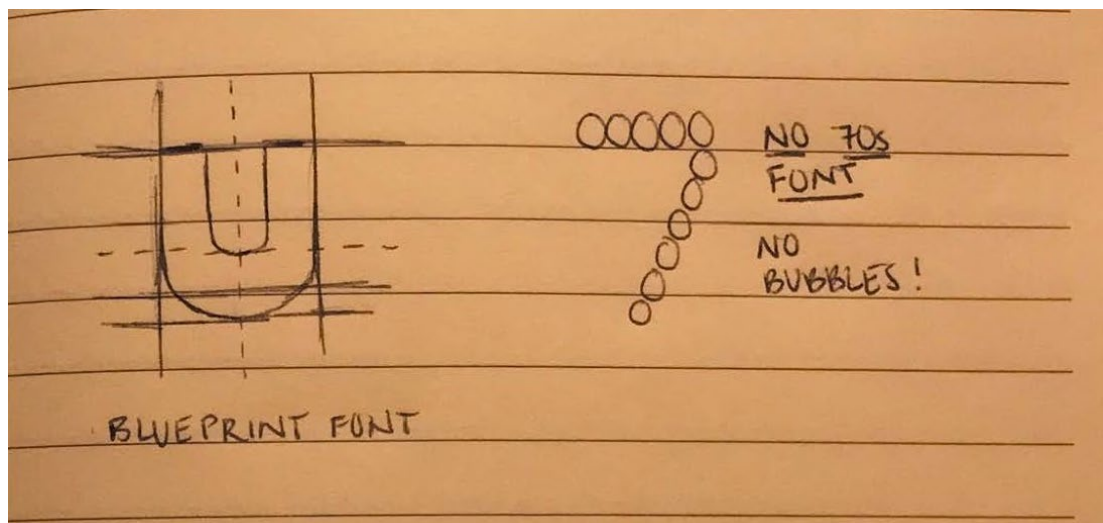 U
7
NO 70s
FONT
NO
BUBBLES!
BLUEPRINT FONT